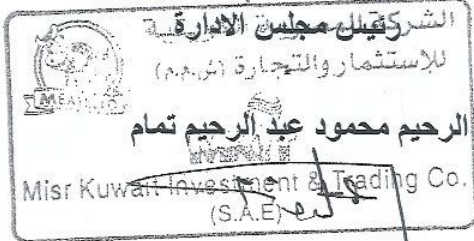 رئيس مجلس الادارة
للإستثمار والتجارة (ش.م.م)
الرحيم محمود عبد الرحيم تمام
Misr Kuwait Investment & Trading Co.
(S.A.E)